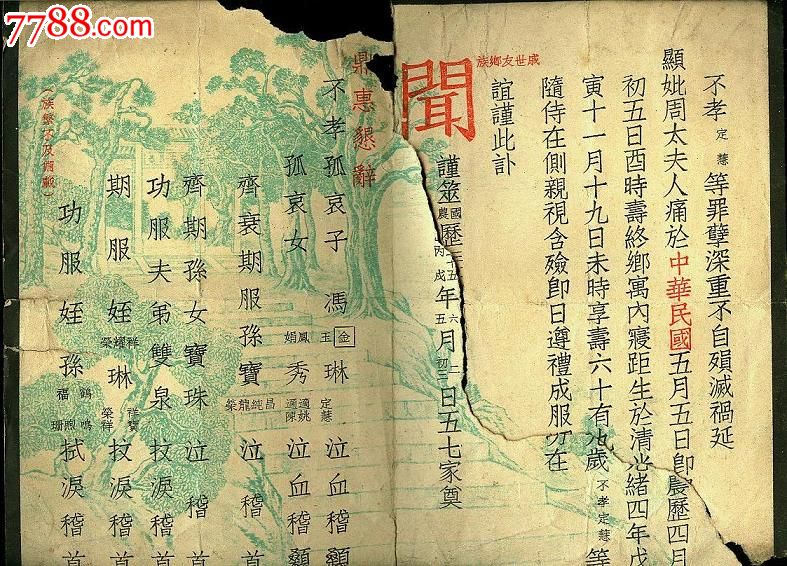 7788.com
不孝定慧等罪孽深重不自殞滅禍延
顯妣周太夫人痛於中華民國五月五日卽農歷四月
初五日酉時壽終鄉寓內寢距生於清光緒四年戊
寅十一月十九日未時享壽六十有九歲不孝定慧等
隨侍在側親視含殮卽日遵禮成服乃在
戚世友鄉族
誼謹此訃
聞
謹筮國農歷三十五丙戌年六五月上初三日五七家奠
鼎惠懇辭
不孝孤哀子馮金玉琳定慧泣血稽顙
孤哀女鳳娟秀適姚適陳泣血稽顙
齊衰期服孫寶昌純龍榮泣稽首
齊期孫女寶珠泣稽首
功服夫弟雙泉抆淚稽首
期服姪祥耀榮琳祥寶榮祥抆淚稽首
功服姪孫鶴福鳴煦珊拭淚稽首
（族繁不及備載）